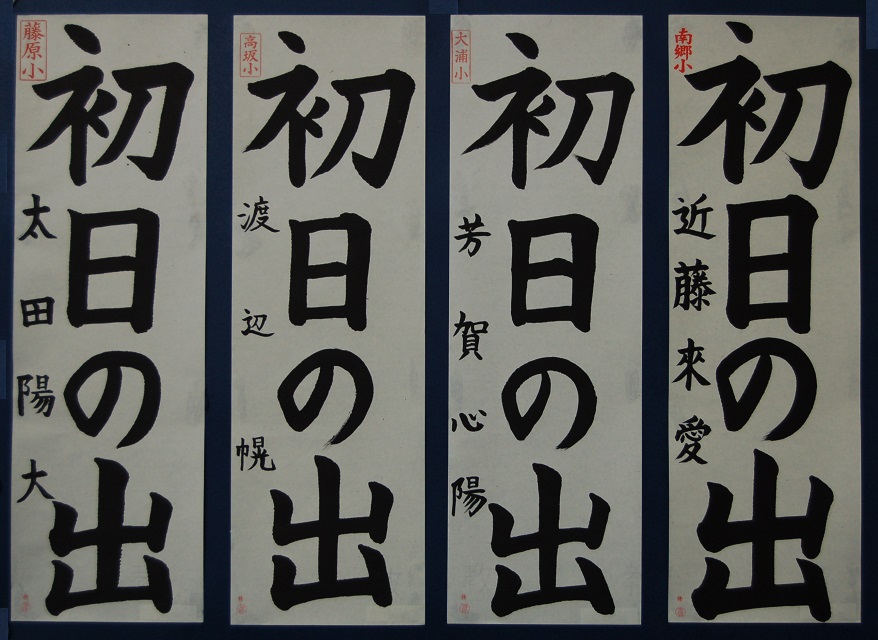 藤原小
初日の出
太田陽大
高坂小
初日の出
渡辺幌
大浦小
初日の出
芳賀心陽
南郷小
初日の出
近藤來愛